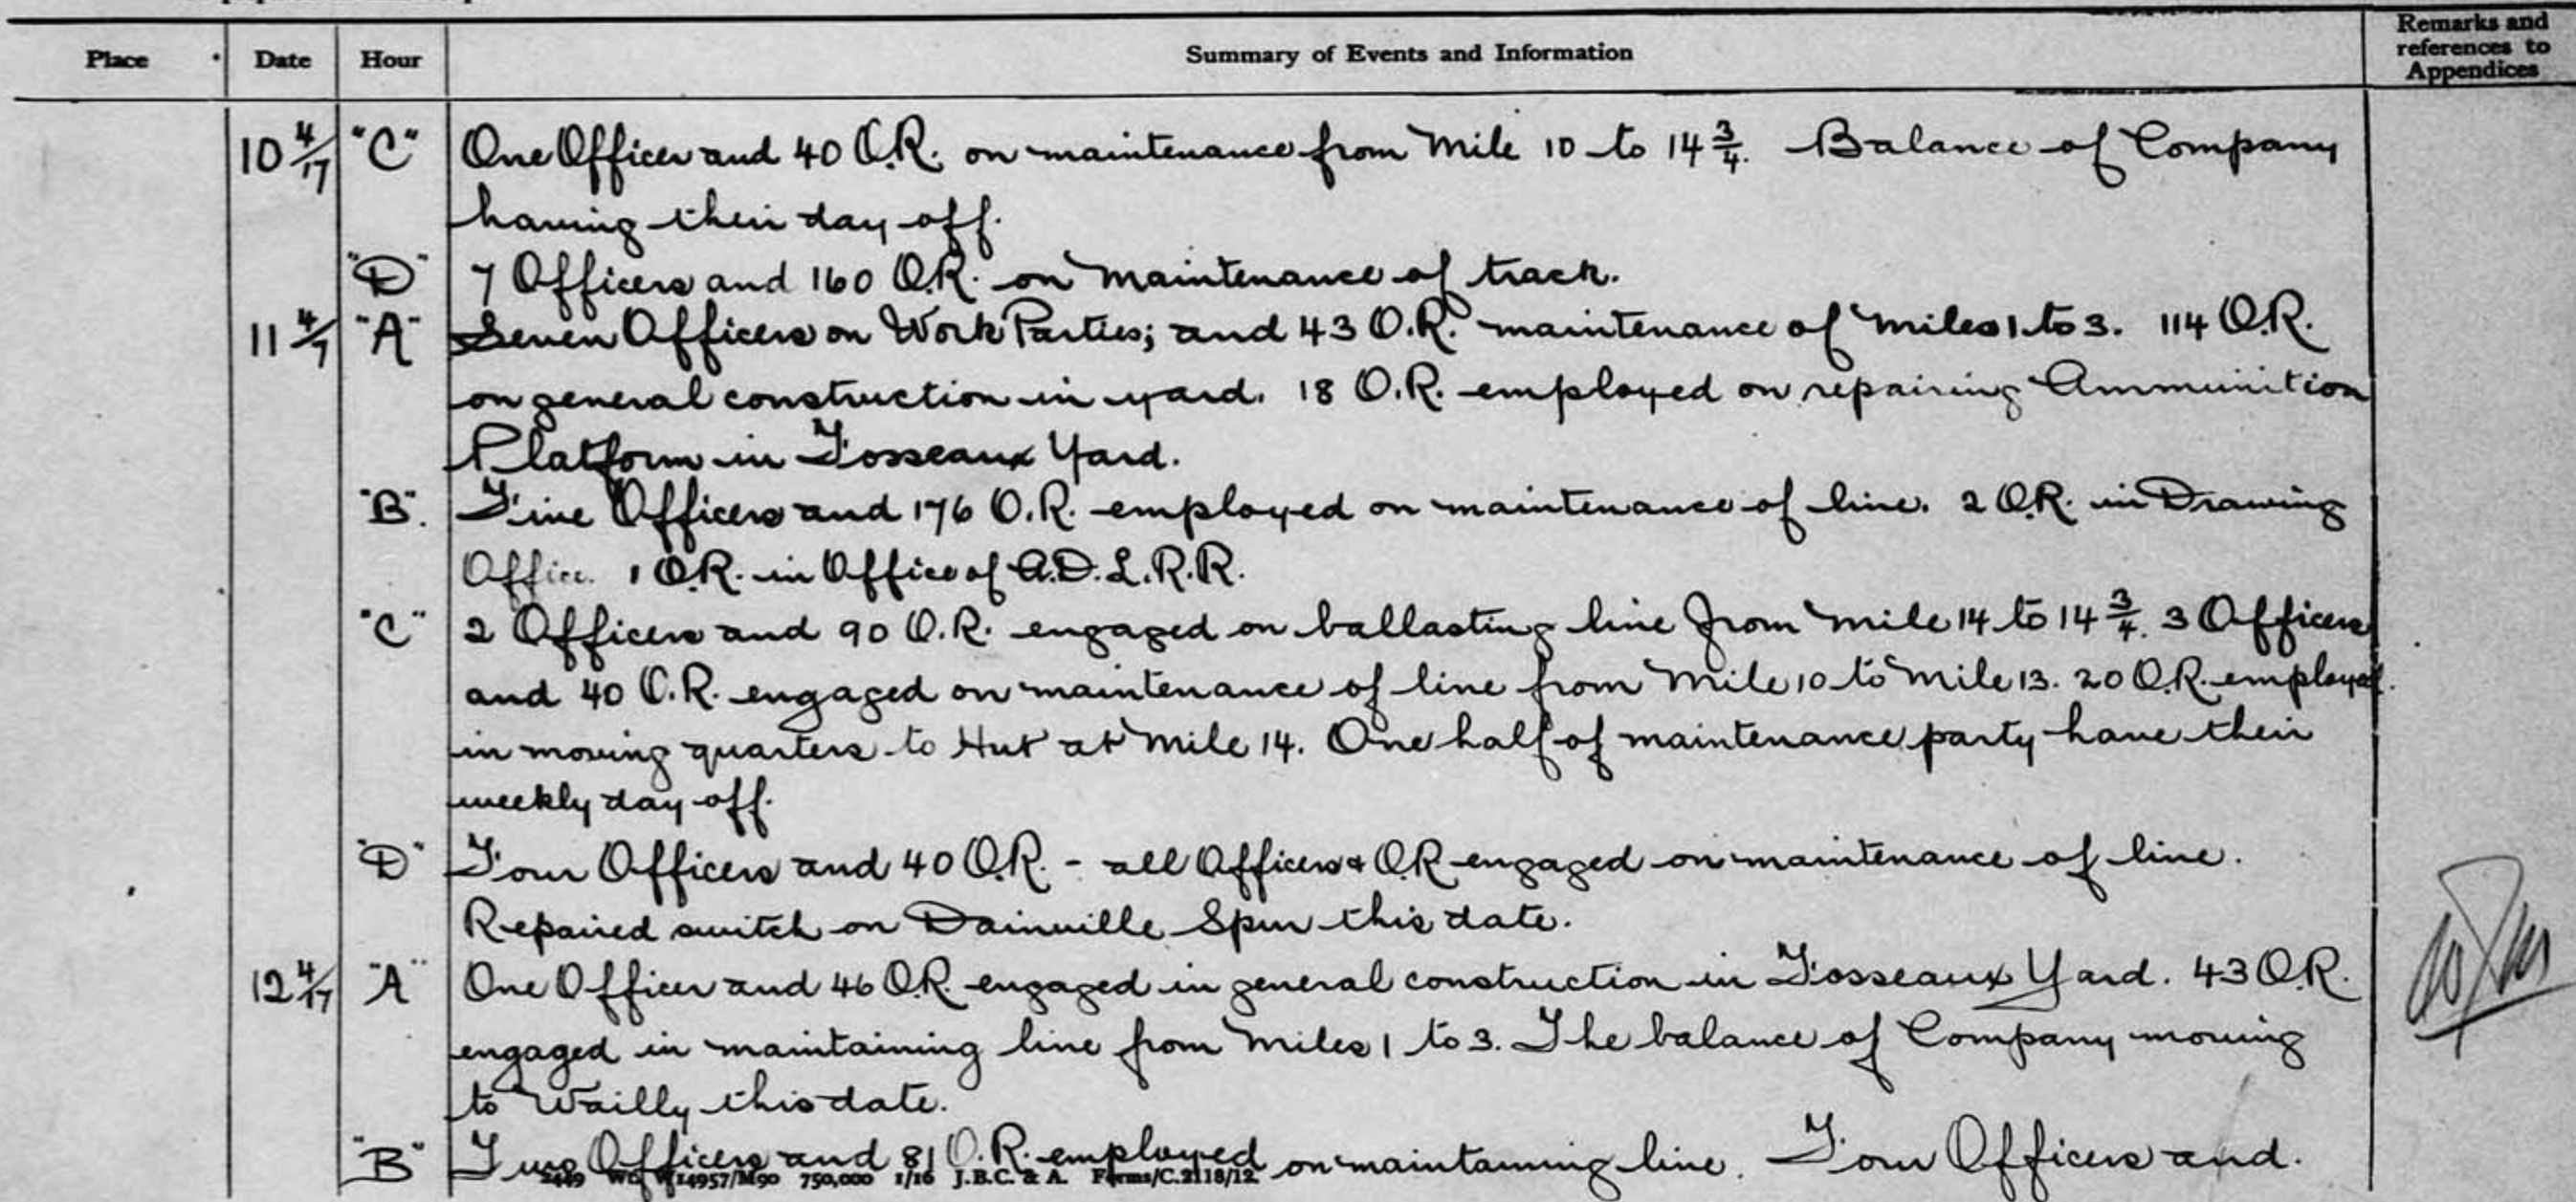 Place Date Hour Summary of Events and Information Remarks and references to Appendices
10 4/17 "C" One Officer and 40 O.R. on maintenance from Mile 10 to 14 3/4. Balance of Company
having their day off.
"D" 7 Officers and 160 O.R. on maintenance of track.
11 4/17 "A" Seven Officers on Work Parties; and 43 O.R. maintenance of miles 1 to 3. 114 O.R.
on general construction in yard. 18 O.R. employed on repairing Ammunition
Platform in Fosseaux Yard.
"B". Five Officers and 176 O.R. employed on maintenance of line. 2 O.R. in Drawing
Office. 1 O.R. in Office of A.D.L.R.R.
"C" 2 Officers and 90 O.R. engaged on ballasting line from mile 14 to 14 3/4. 3 Officers
and 40 O.R. engaged on maintenance of line from Mile 10 to Mile 13. 20 O.R. employed.
in moving quarters to Hut at Mile 14. One half of maintenance party have their
weekly day off.
"D" Four Officers and 40 O.R. - all Officers & O.R engaged on maintenance of line.
Repaired switch on Dainville Spur this date.
12 4/17 "A" One Officer and 46 O.R. engaged in general construction in Fosseaux Yard. 43 O.R.
engaged in maintaining line from miles 1 to 3. The balance of Company moving
to Wailly this date.
"B" Two Officers and 81 O.R. employed on maintaining line. Four Officers and.
2449 Wt. W14957/M90 750,000 1/16 J.B.C. & A. Forms/C.2118/12